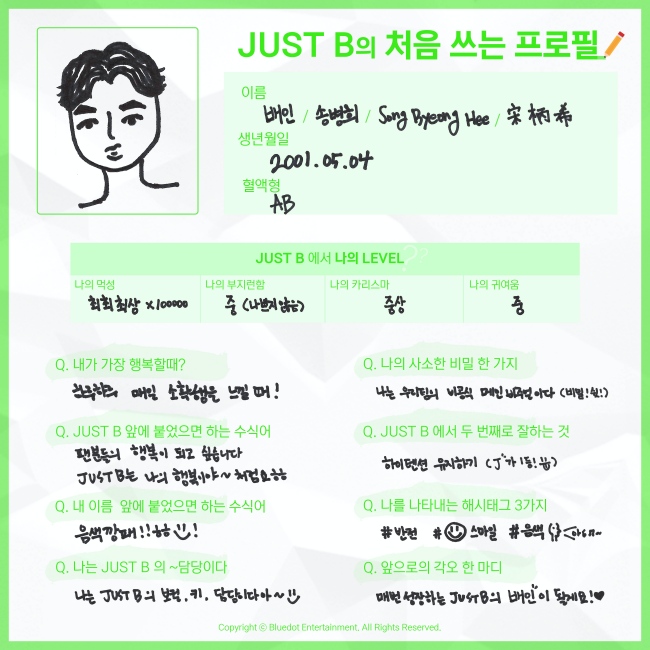 JUST B의 처음 쓰는 프로필
이름
배인 / 송병희 / Song Byeong Hee / 宋 柄 希
생년월일
2001.05.04
혈액형
AB
JUST B 에서 나의 LEVEL
나의 먹성
최최최상 ×100000
나의 부지런함
중 (나쁘지않음)
나의 카리스마
중상
나의 귀여움
중
Q. 내가 가장 행복할때?
하루하루 매일 소확행을 느낄 때!
Q. JUST B 앞에 붙었으면 하는 수식어
팬분들의 행복이 되고 싶습니다
JUST B는 나의 행복이야~ 처럼요ㅎㅎ
Q. 내 이름 앞에 붙었으면 하는 수식어
음색깡패!!ㅎㅎ !
Q. 나는 JUST B 의 ~담당이다
나는 JUST B의 보컬, 키, 담당이다아~
Q. 나의 사소한 비밀 한 가지
나는 우리팀의 비공식 메인 이다 (비밀!쉿!)
Q. JUST B 에서 두 번째로 잘하는 것
하이텐션 유지하기 (J 가 1등!)
Q. 나를 나타내는 해시태그 3가지
#반전 # 스마일 #음색
Q. 앞으로의 각오 한 마디
매번 성장하는 JUST B의 "배인"이 될게요!♥
Copyright ⓒ Bluedot Entertainment, All Rights Reserved.